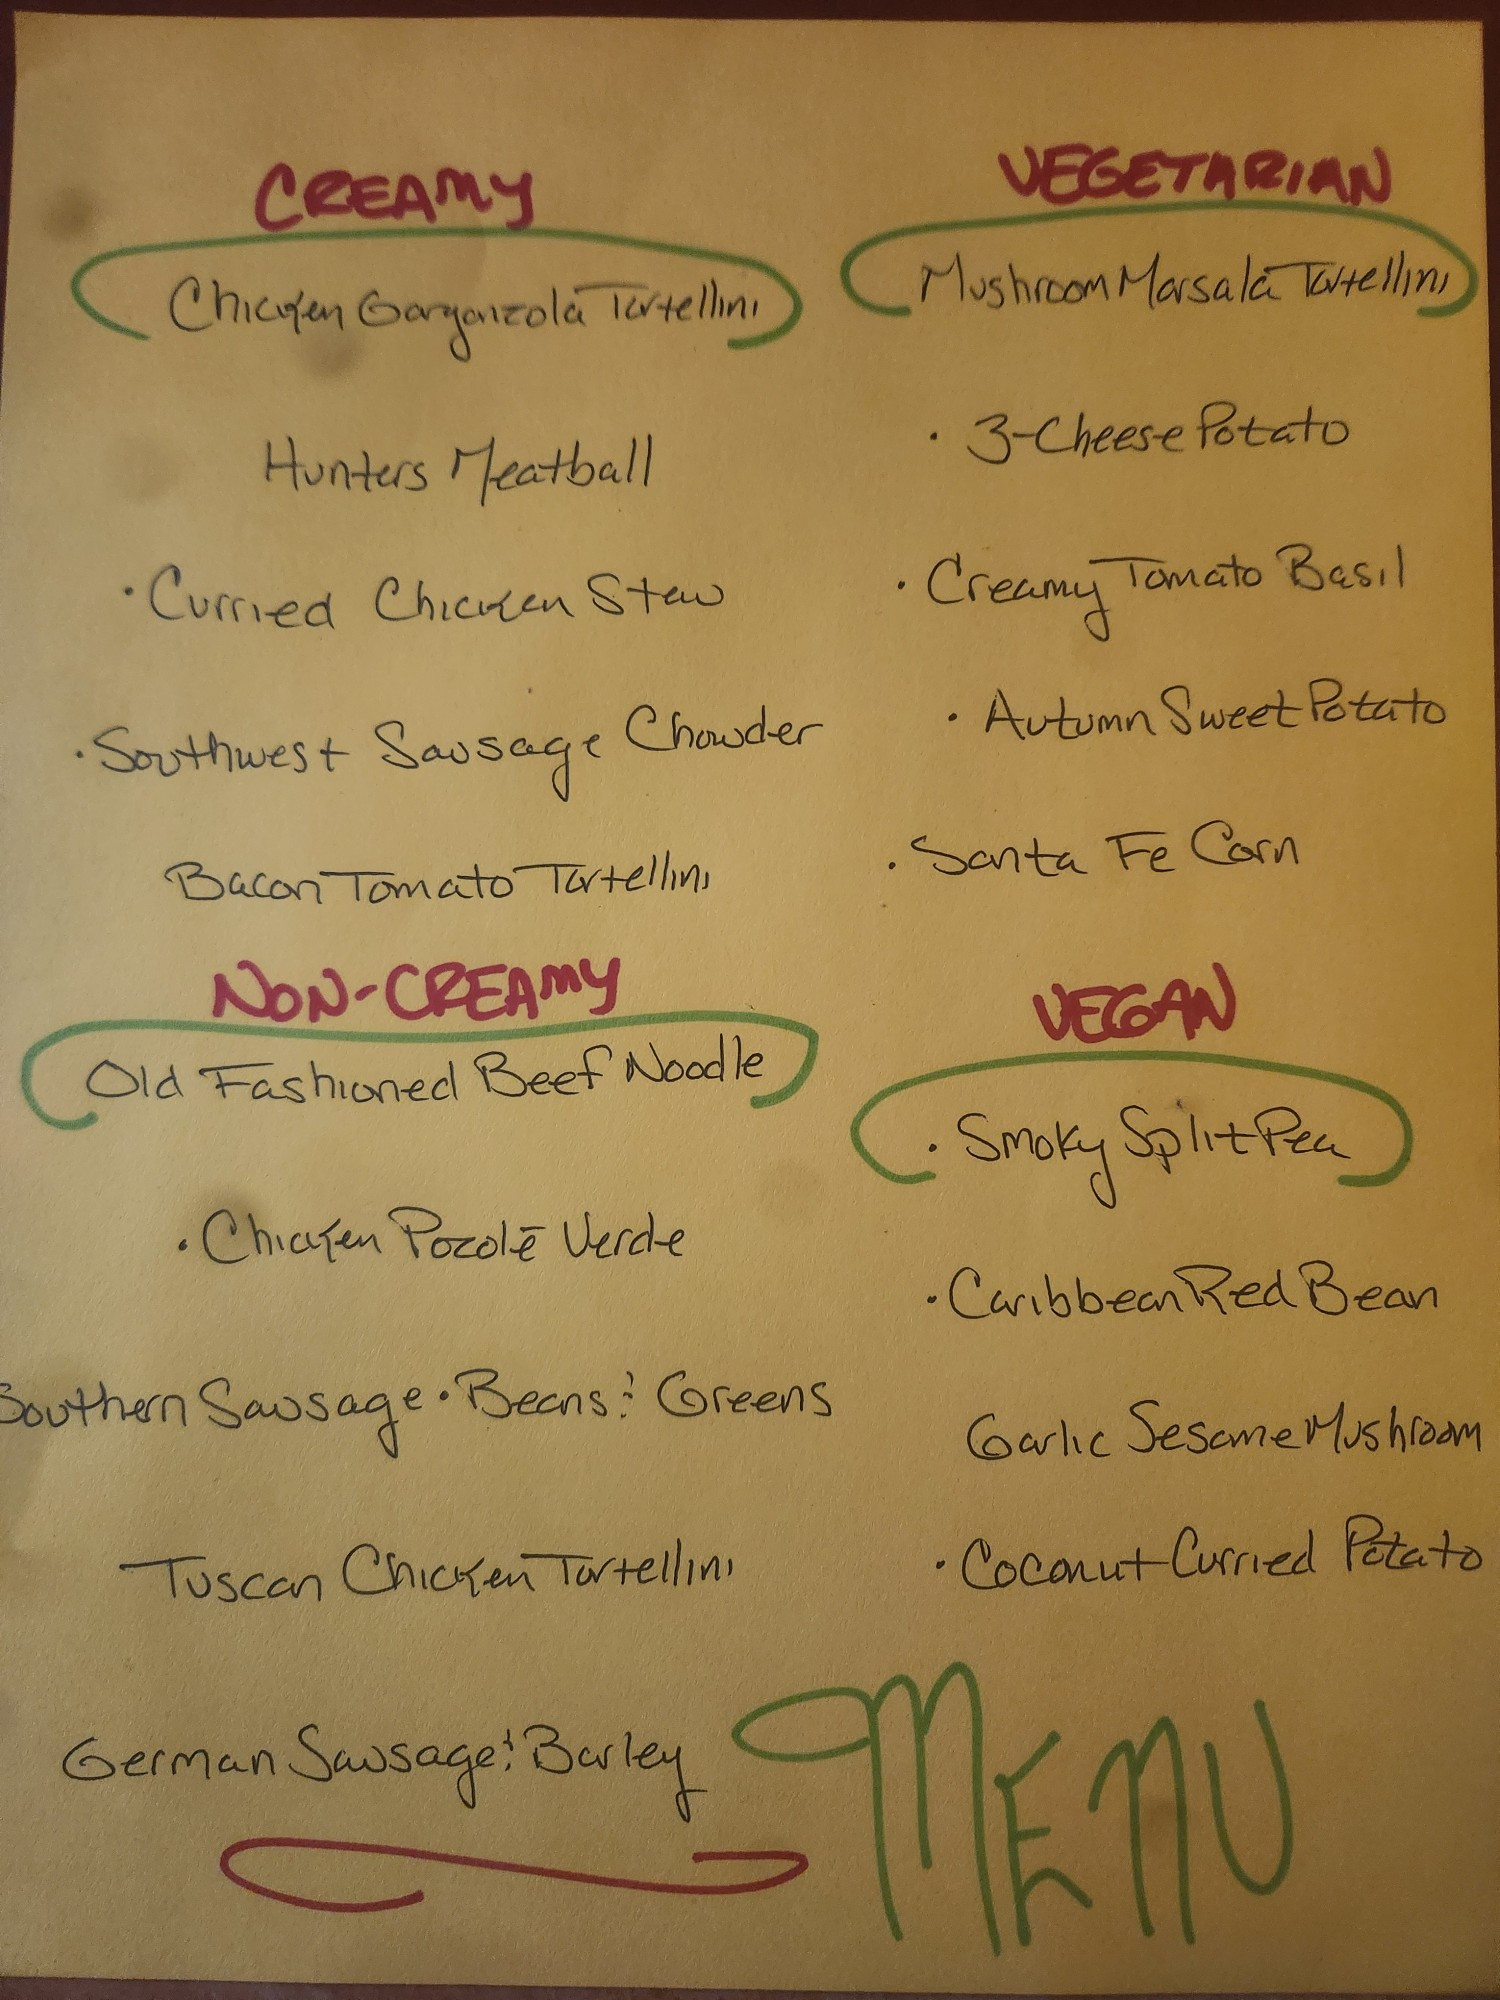 CREAMY
Chicken Gorgonzola Tortellini
Hunters Meatball
· Curried Chicken Stew
· Southwest Sausage Chowder
Bacon Tomato Tortellini
NON-CREAMY
Old Fashioned Beef Noodle
· Chicken Pozolē Verde
Southern Sausage · Beans & Greens
Tuscan Chicken Tortellini
German Sausage & Barley
VEGETARIAN
Mushroom Marsala Tortellini
· 3-Cheese Potato
· Creamy Tomato Basil
· Autumn Sweet Potato
· Santa Fe Corn
VEGAN
· Smoky Split Pea
· Caribbean Red Bean
Garlic Sesame Mushroom
· Coconut Curried Potato
MENU